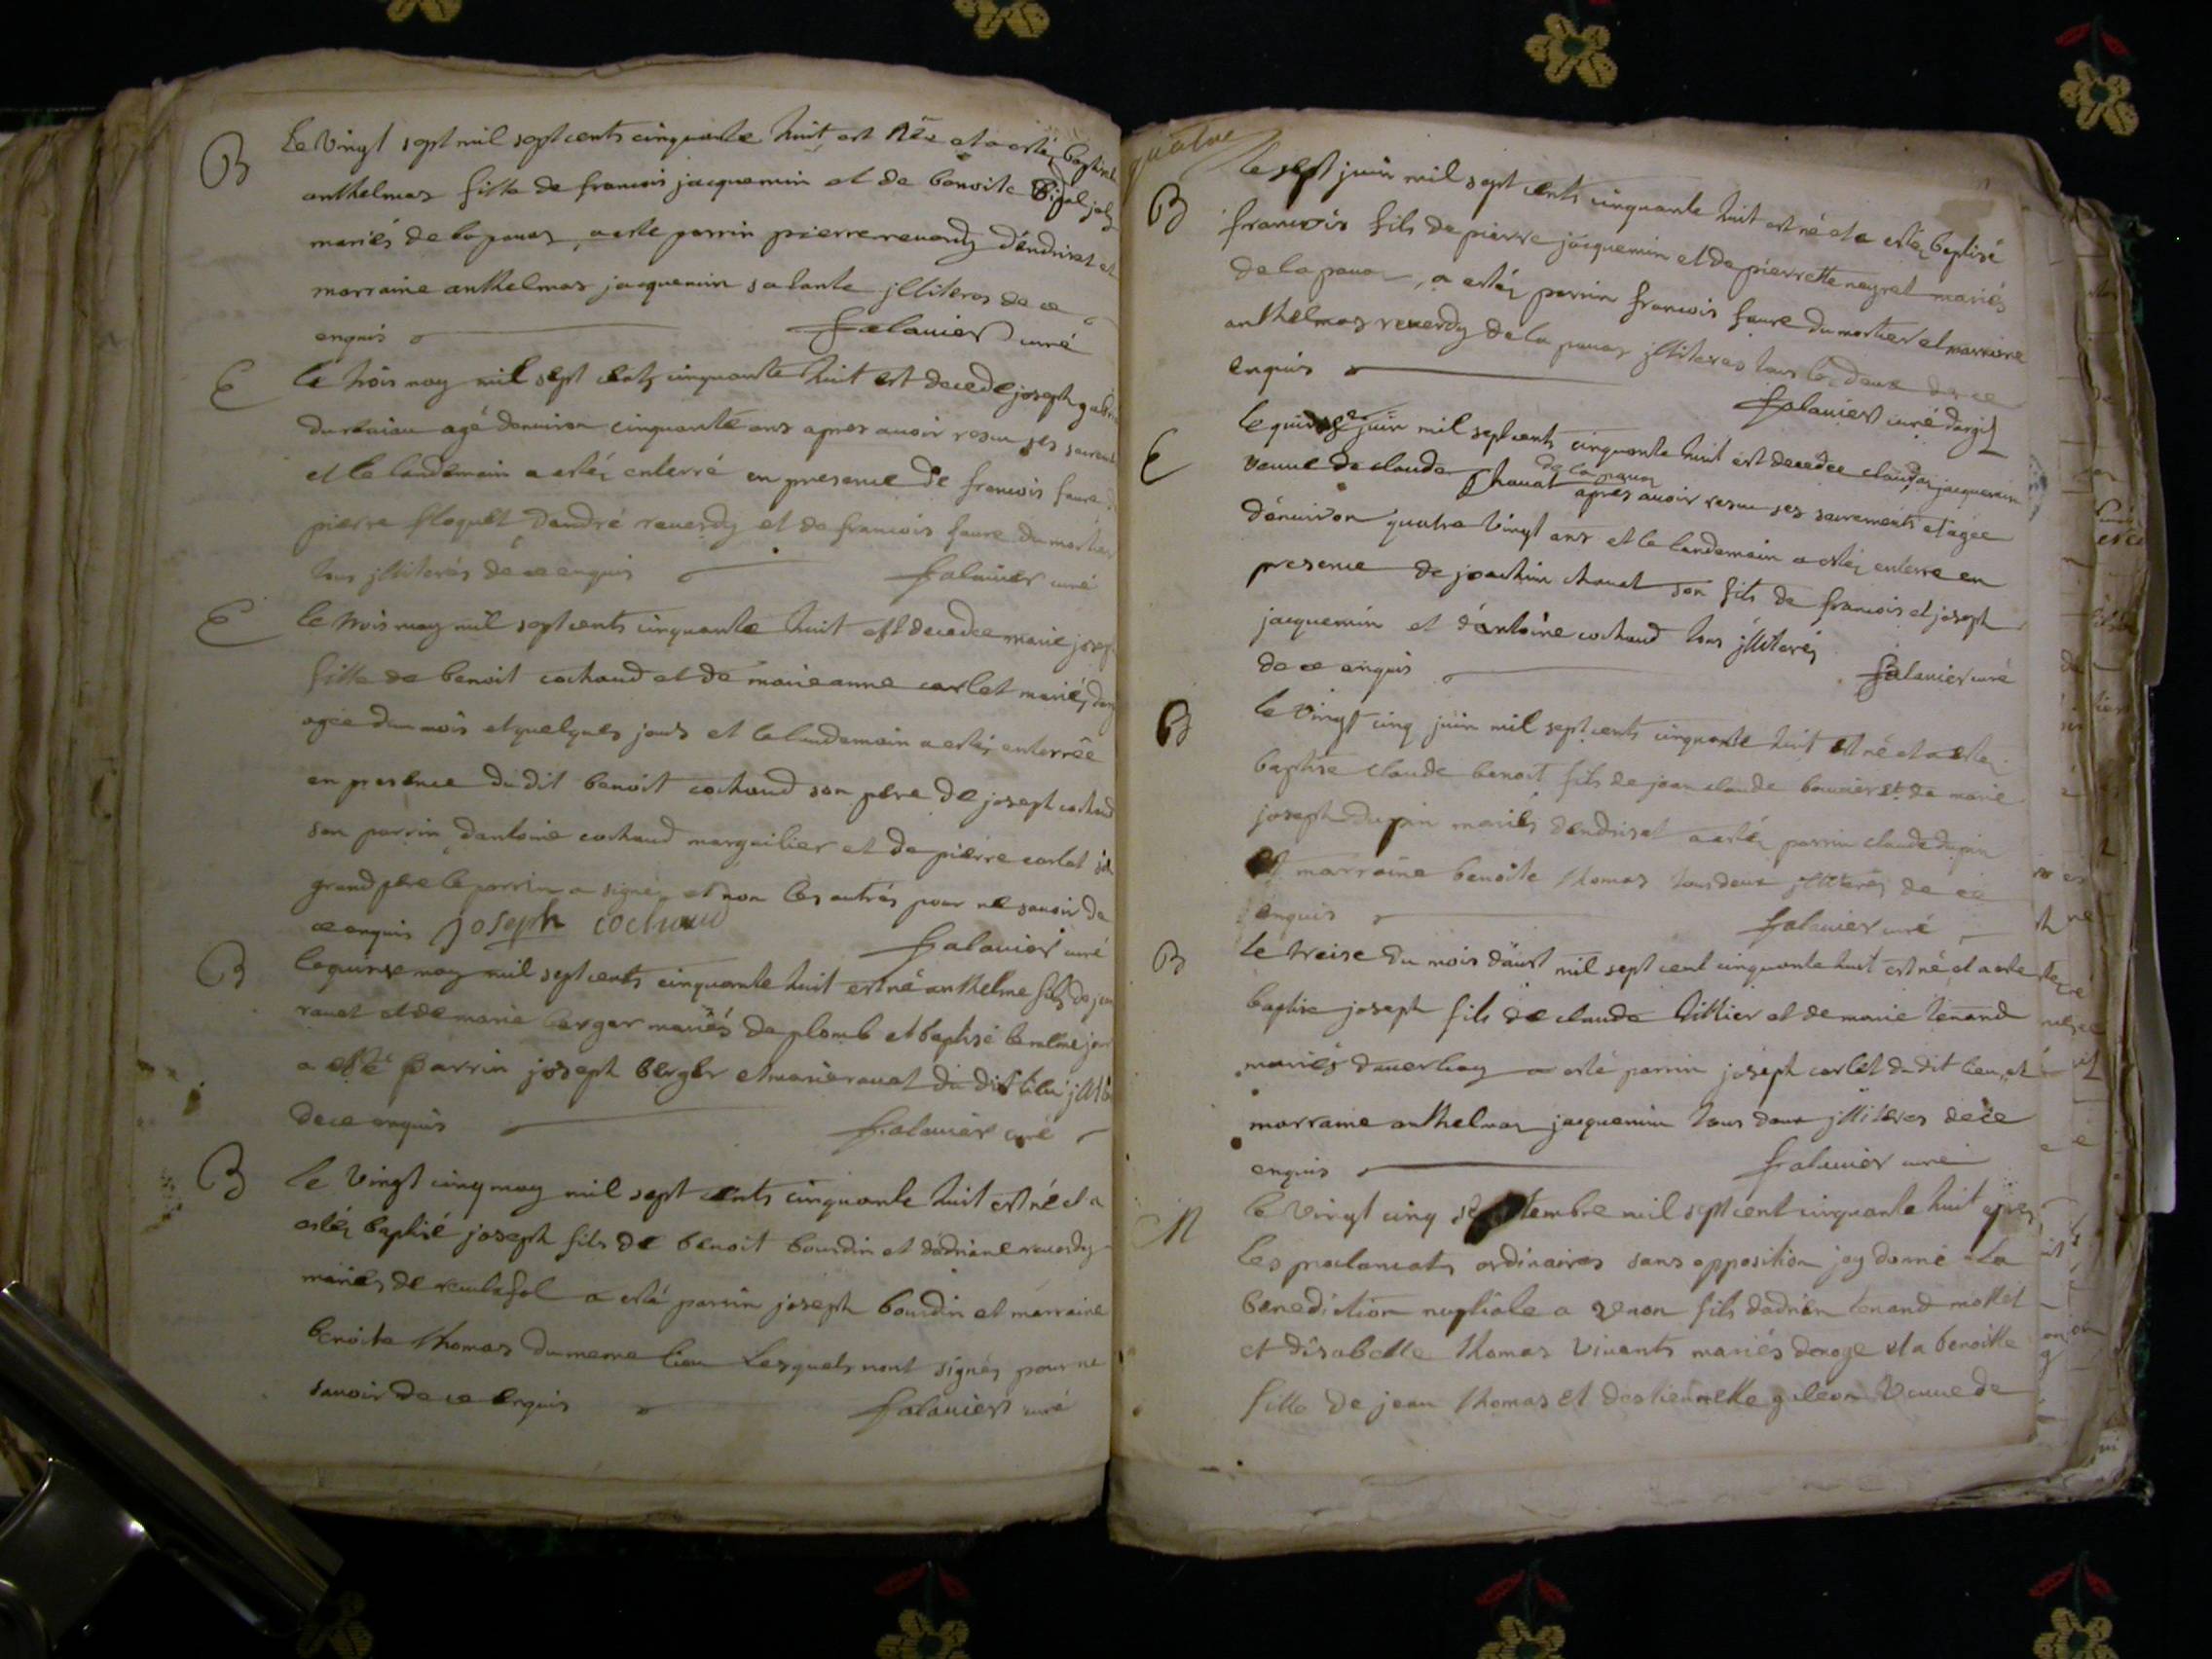 B
Le Vingt sept mil sept cents cinquante huit est née et a estéz baptisée
anthelmaz fille de francois jacquemin et de benoite
mariés de la pauaz a esté parrin pierre reuerdy d'endriset et
marraine anthelmaz jacquemin sa tante jlliteres de ce
enquis falauier curé
E
le trois may mil sept cents cinquante huit est decede joseph
agé denuiron cinquante ans apres auoir rescu ses
et le landemain a estéz enterré en presence de francois faure
pierre floquet d'andré reuerdy et de francois faure du mortier
tous jlliterés de ce enquis falauier curé
E
le trois may mil sept cents cinquante huit est decedee marie
fille de benoit cochaud et de marieanne carlet mariés
agée dun mois et quelques jours et le landemain a estéz enterrée
en presence du dit benoit cochaud son pere de joseph cochaud
son parrin d'antoine cochaud margeilier et de pierre carlet
grand pere le parrin a signéz et non les autres pour ne sauoir de
ce enquis joseph cochaud falauier curé
B
le quinse may mil sept cents cinquante huit est né anthelme fils de
rauat et de marie berger mariés de plomb et baptisé le meme jour
a esté parrin joseph berger et marie rauat du dit lieu
de ce enquis falauier curé
B
le Vingt cinq may mil sept cents cinquante huit est né et a
estéz baptisé joseph fils de benoit bourdin et d'adriane reuerdy
mariés de a esté parrin joseph bourdin et marraine
benoite thomas du meme lieu Lesquels nont signés pour ne
sauoir de ce enquis falauier curé
quatre
B
le sept juin mil sept cents cinquante huit est né et a estéz baptisé
francois fils de pierre jacquemin et de pierrette neyret mariés
de la pauaz, a estéz parrin francois faure du mortier et marraine
anthelmaz reuerdy de la pauaz jlliteres tous les deux de ce
enquis falauier curé
E
le quinse juin mil sept cents cinquante huit est decedee claudaz jacquemin
de la pauaz
veuue de claude chauat apres auoir rescu ses sacrements et agée
d'enuiron quatre Vingt ans et le landemain a estéz enterre en
presence de joachim chauat son fils de francois et joseph
jacquemin et d'antoine cochaud tous jlliterés
de ce enquis falauier curé
B
le Vingt cinq juin mil sept cents cinquante huit est né et a estéz
baptise claude benoit fils de jean claude bouuier et de marie
joseph dupin mariés d'endriset a estéz parrin claude dupin
et marraine benoite thomas tous deux jlliterés de ce
enquis falauier curé
B
le treise du mois d'aust mil sept cent cinquante huit est né et a esté
baptise joseph fils de claude tillier et de marie tenand
mariés a esté parrin joseph carlet du dit lieu, et
marraine anthelmaz jacquemin tous deux jlliteres de ce
enquis falauier curé
M
le Vingt cinq septembre mil sept cent cinquante huit apres
les proclamats ordinaires sans opposition jay donné La
benediction nuptiale a fils dadrien tenand mollet
et disabelle thomas Viuants mariés et a benoitte
fille de jean thomas et destiennette guleon Veuue de